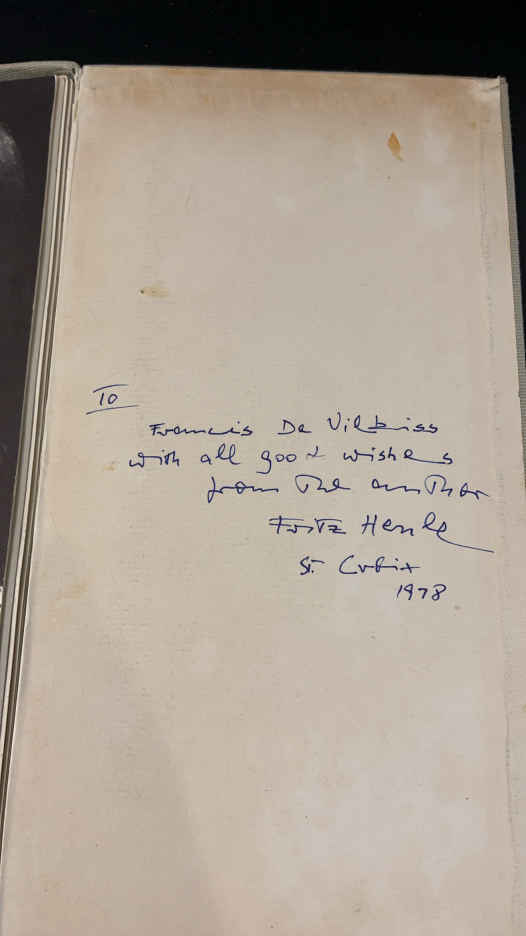 To
Francis De Vilbiss
with all good wishes
from The author
Fritz Henle
St. Croix
1978